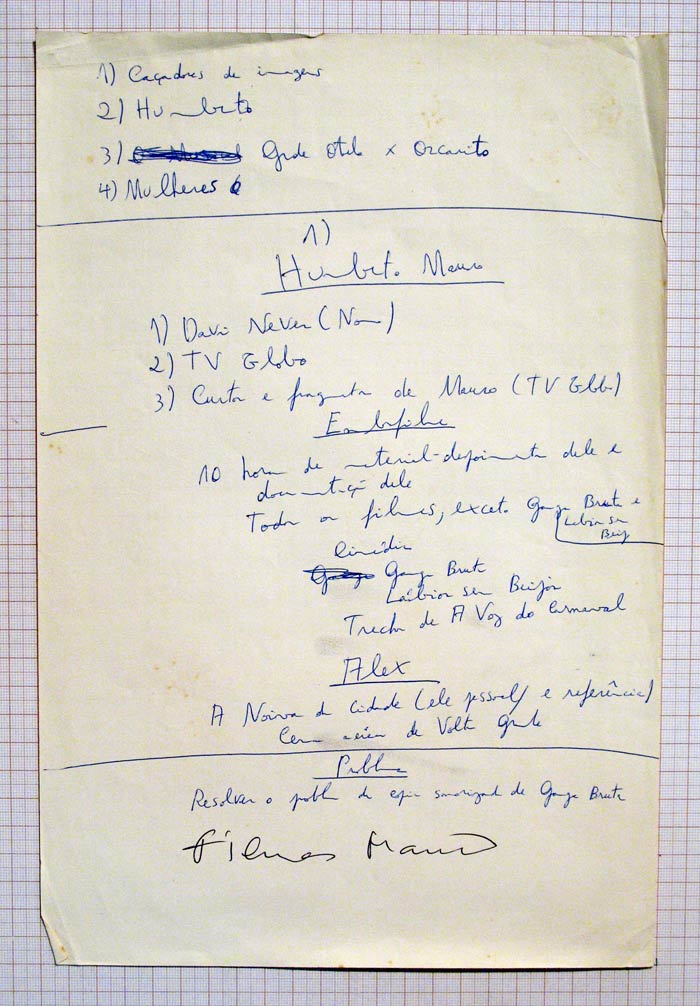 1) Caçadores de imagens
2) Humberto
3) Grde Otelo x Oscarito
4) Mulheres
1)
Humberto Mauro
1) David Neves (Nom)
2) TV Globo
3) Curtos e fragmentos de Mauro (TV Globo)
Embrafilme
10 horas de material-depoimento dele e
documentação dele
Todos os filmes, exceto Ganga Bruta e
Lábios sem
Beijos
Cinédia
Ganga Bruta
Lábios sem Beijos
Trechos de A Voz do Carnaval
Alex
A Noiva da Cidade (ele pessoal/ e referência)
Cena aérea de Volta Grande
Problema
Resolver o problema da cópia sonorizada de Ganga Bruta
Filmes Mauro